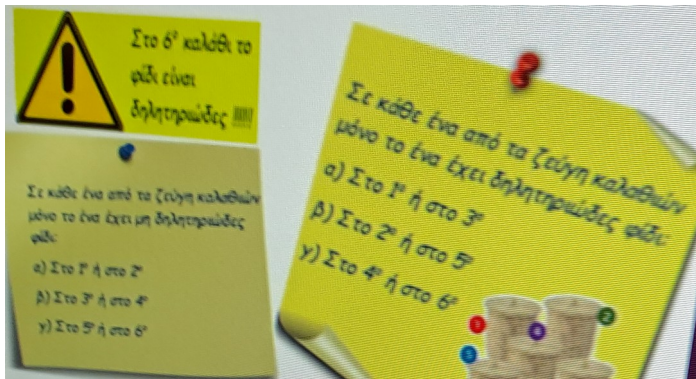 Στο 6º καλάθι το
φίδι είναι
δηλητηριώδες !!!!!!
Σε κάθε ένα από τα ζεύγη καλαθιών
μόνο το ένα έχει μη δηλητηριώδες
φίδι:
α) Στο 1º ή στο 2º
β) Στο 3º ή στο 4º
γ) Στο 5º ή στο 6º
Σε κάθε ένα από τα ζεύγη καλαθιών
μόνο το ένα έχει δηλητηριώδες φίδι:
α) Στο 1º ή στο 3º
β) Στο 2º ή στο 5º
γ) Στο 4º ή στο 6º
1
2
4
5